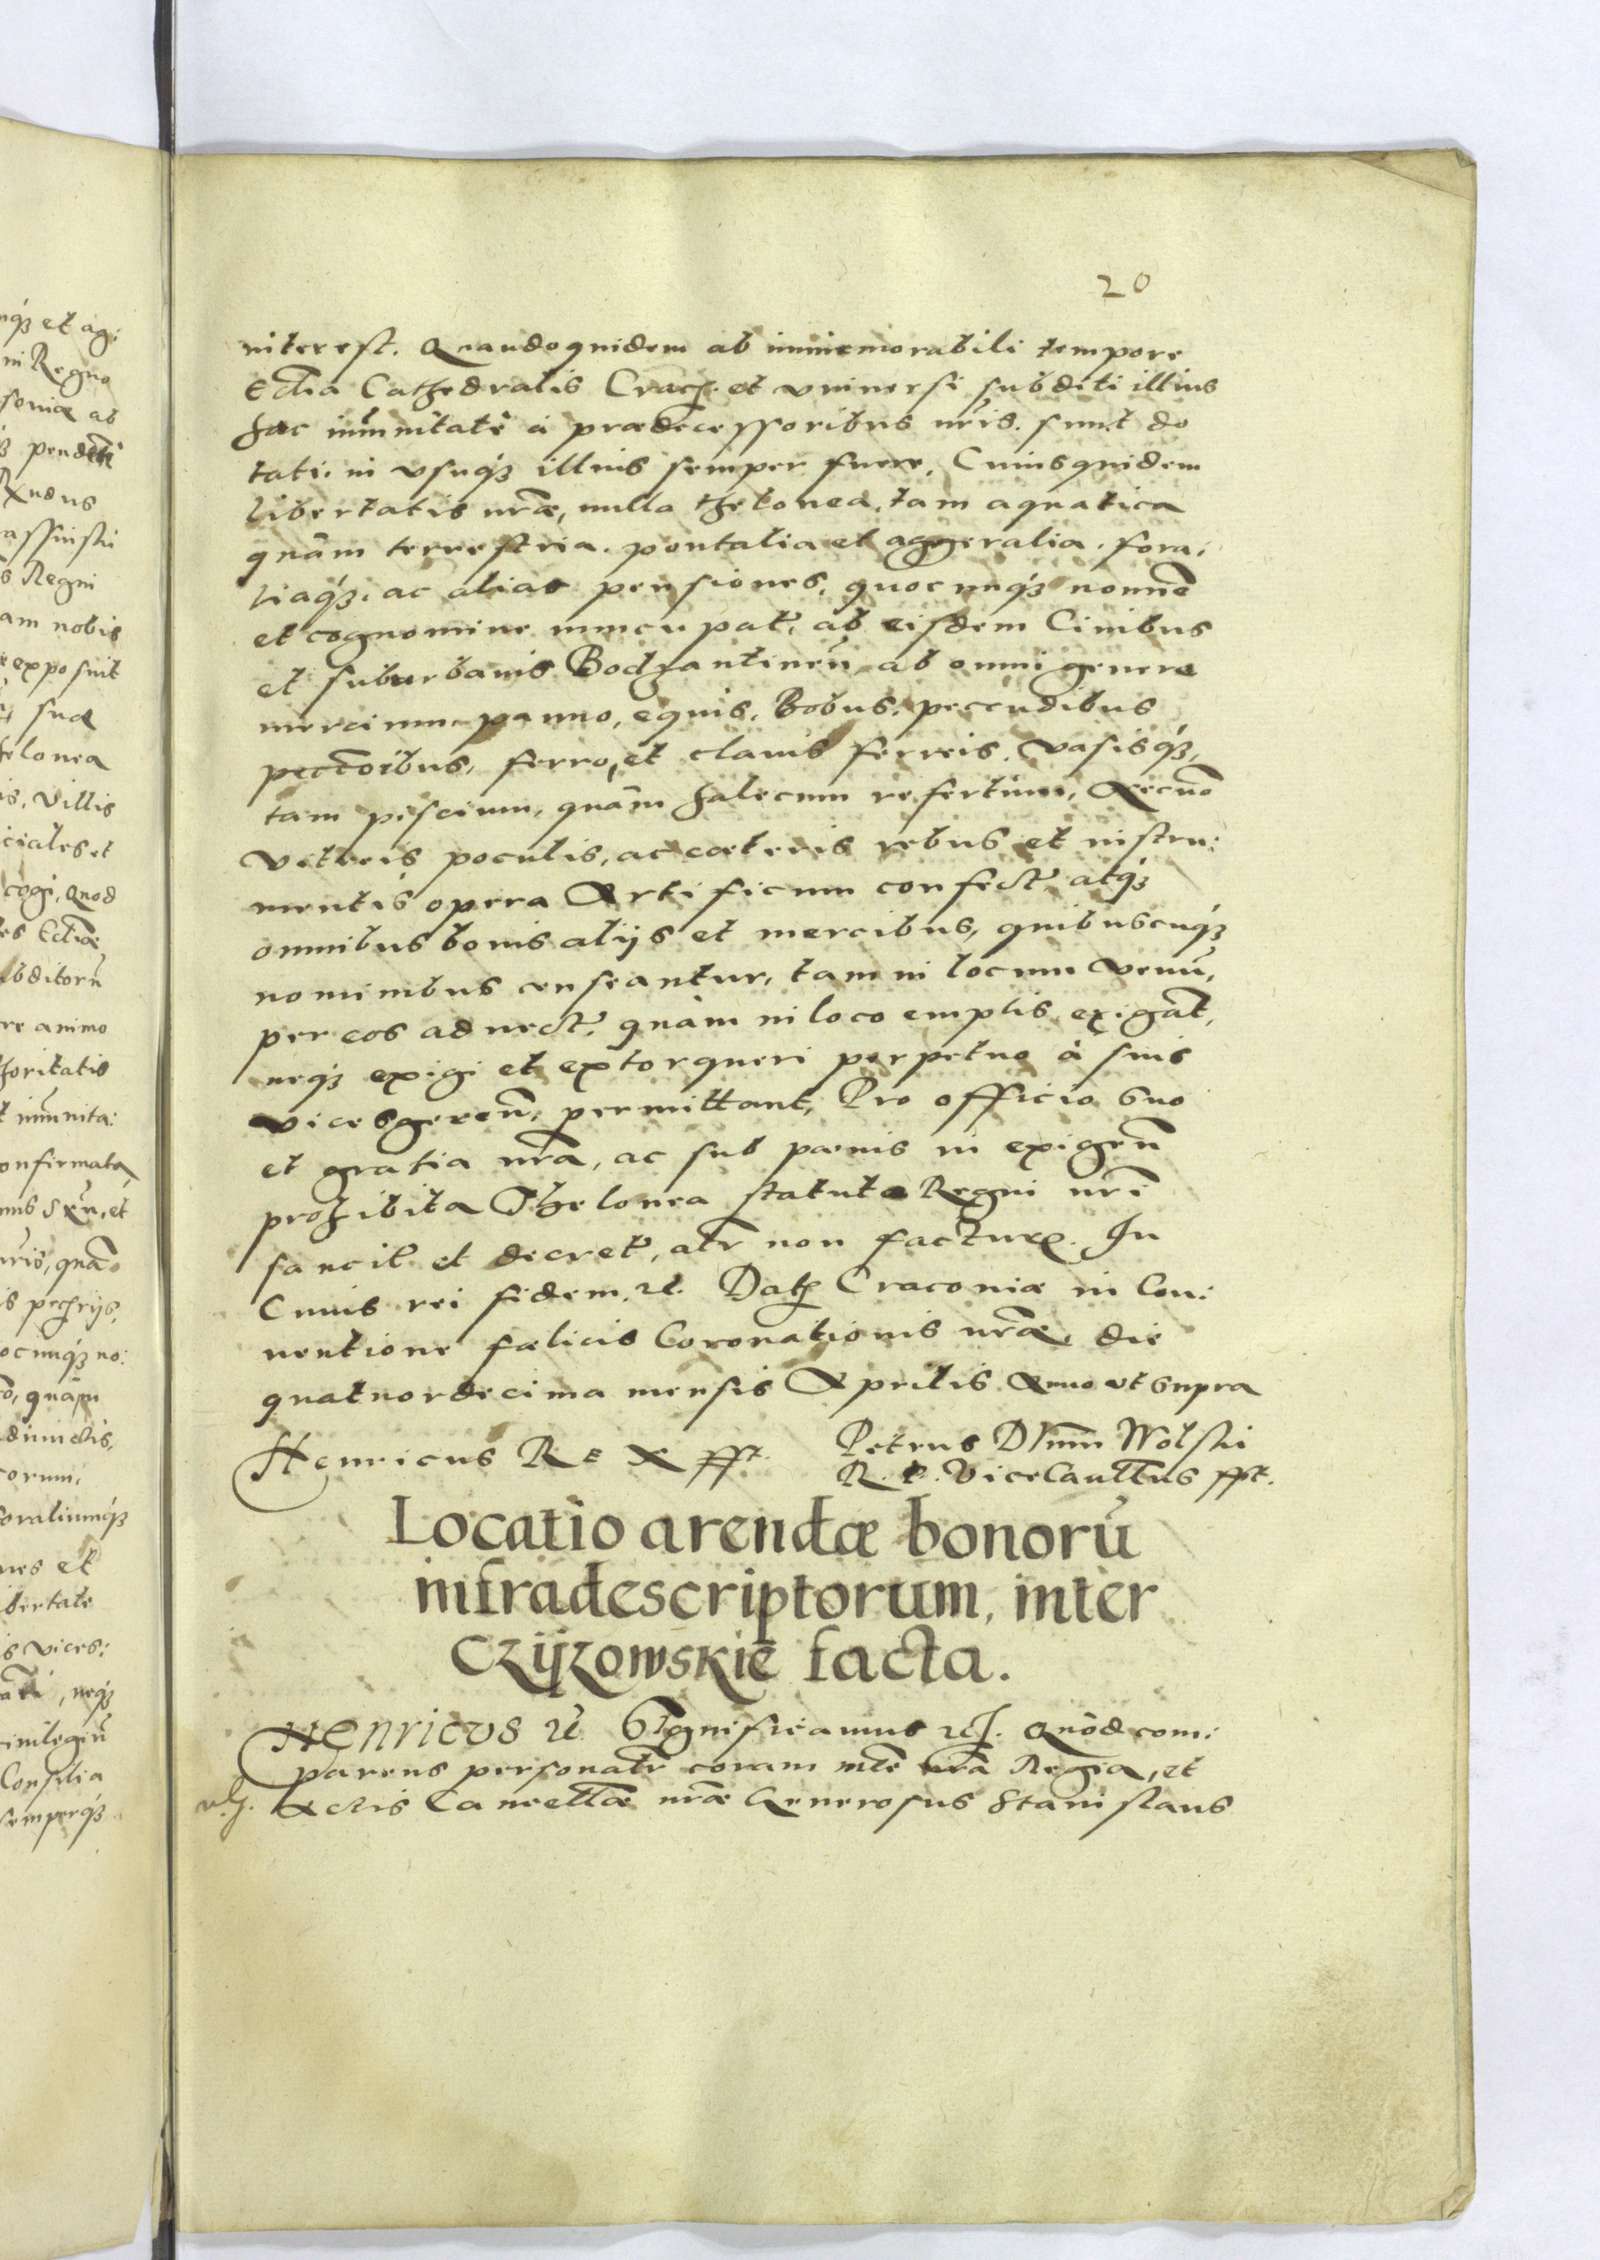 20
interest. Quandoquidem ab immemorabili tempore
Ecclia Cathedralis Crach. et vniuersi subditi illius
hac im̄unitatē à prædecessoribus nr̄is. sunt do
tati. in vsuq́ꝫ illius semper fuere. Cuiusquidem
libertatis nr̄æ, nulla thelonea, tam aquatica
quàm terrestria. pontalia et aggeralia. fora,
liaq́ꝫ, ac alias pensiones, quocunq́ꝫ nomīe
et cognomine nuncupat̄, ab eisdem Ciuibus
et suburbanis Bodzantineñ ab omni genere
mercium, panno, equis, Bobus, pecudibus
pectoribus, ferro, et clauis ferreis, vasisq́ꝫ,
tam piscium, quàm halecum refertium, necnō
vitreis poculis, ac cæteris rebus et instru:
mentis opera Artificum confect̄ atq́ꝫ
omnibus bonis alijs et mercibus, quibuscuq́ꝫ
nominibus censeantur, tam in locum venū,
per eos aduect̄, quàm in loco emptis exigāt,
neq́ꝫ exigi et extorqueri perpetuo à suis
vicesgereñ, permittant, Pro officio suo
et gratia nr̄a, ac sub pænis in exigeñ
prohibita Thelonea statuta Regni nr̄i
sancit̄ et decret̄, alr̄ non factur̄. In
Cuius rei fidem. ꝛc̄. Dat̄ Cracouiæ in Con:
uentione fælicis Coronationis nr̄æ, die
quatuordecima mensis Aprilis Anno vt supra
Henricus REX sst.
Petrus Duīn Wolski
R. P. ViceCanll̄us sst.
Locatio arendæ bonorū
infradescriptorum, inter
Czyzowskie facta.
HENRICVS ꝛc̄ Significamus ꝛc̄. Quòd com:
parens personalr̄ coram mt̄e nr̄a Regia, et
Actis Cancell̄æ nr̄æ Generosus Stanislaus